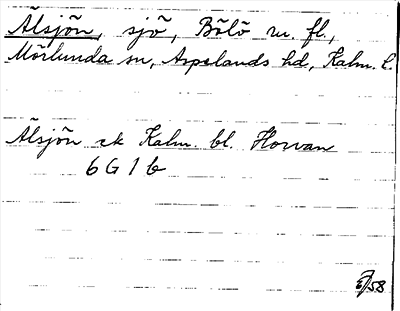 Älsjön, sjö, Bölö m. fl.,
Mörlunda sn, Aspelands hd, Kalm. l.
Älsjön ek Kalm. bl. Horvan
6 G 1 b
58